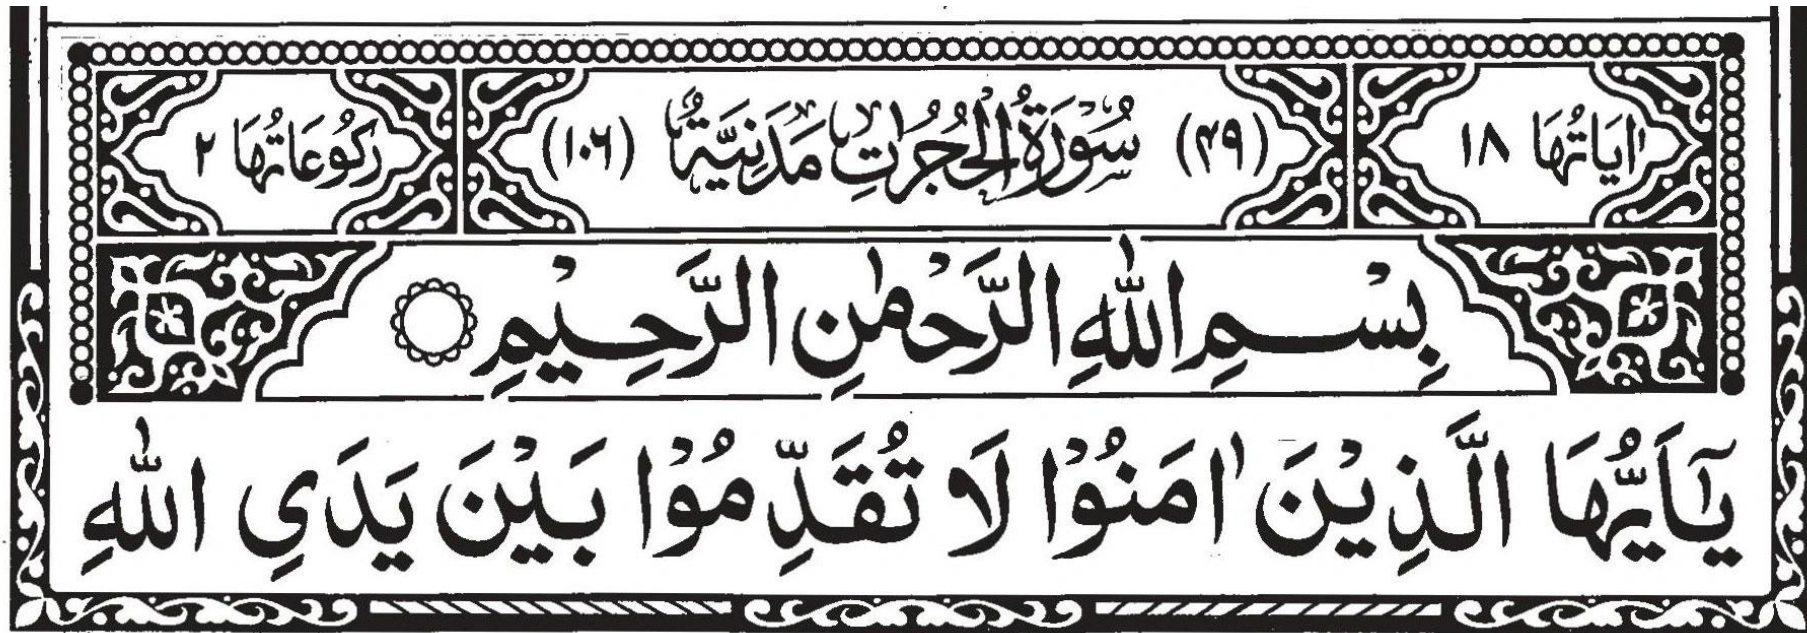 اٰيَاتُهَا ١٨ (٤٩) سُوْرَةُ الْحُجُرٰتِ مَدَنِيَّةٌ (١٠٦) رُكُوْعَاتُهَا ٢
بِسْمِ اللّٰهِ الرَّحْمٰنِ الرَّحِيْمِ
يٰٓاَيُّهَا الَّذِيْنَ اٰمَنُوْا لَا تُقَدِّمُوْا بَيْنَ يَدَيِ اللّٰهِ